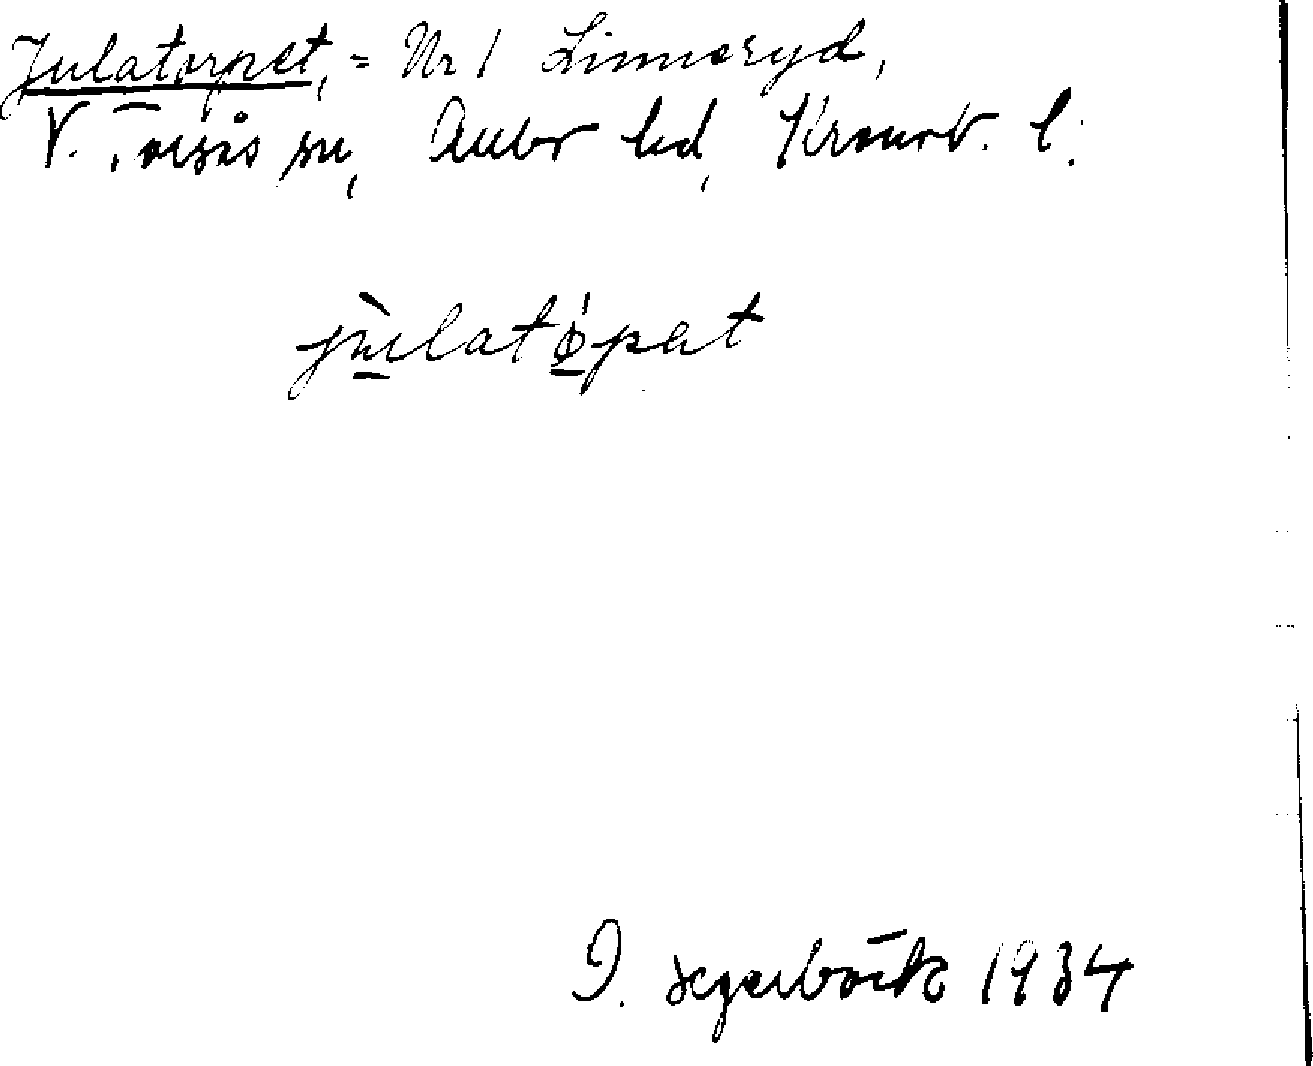 Julatorpet, = Nr 1 Linneryd,
V. Torsås sn, Allbo hd, Kronob. l.
jùlatǿpet
I. Segerbäck 1934